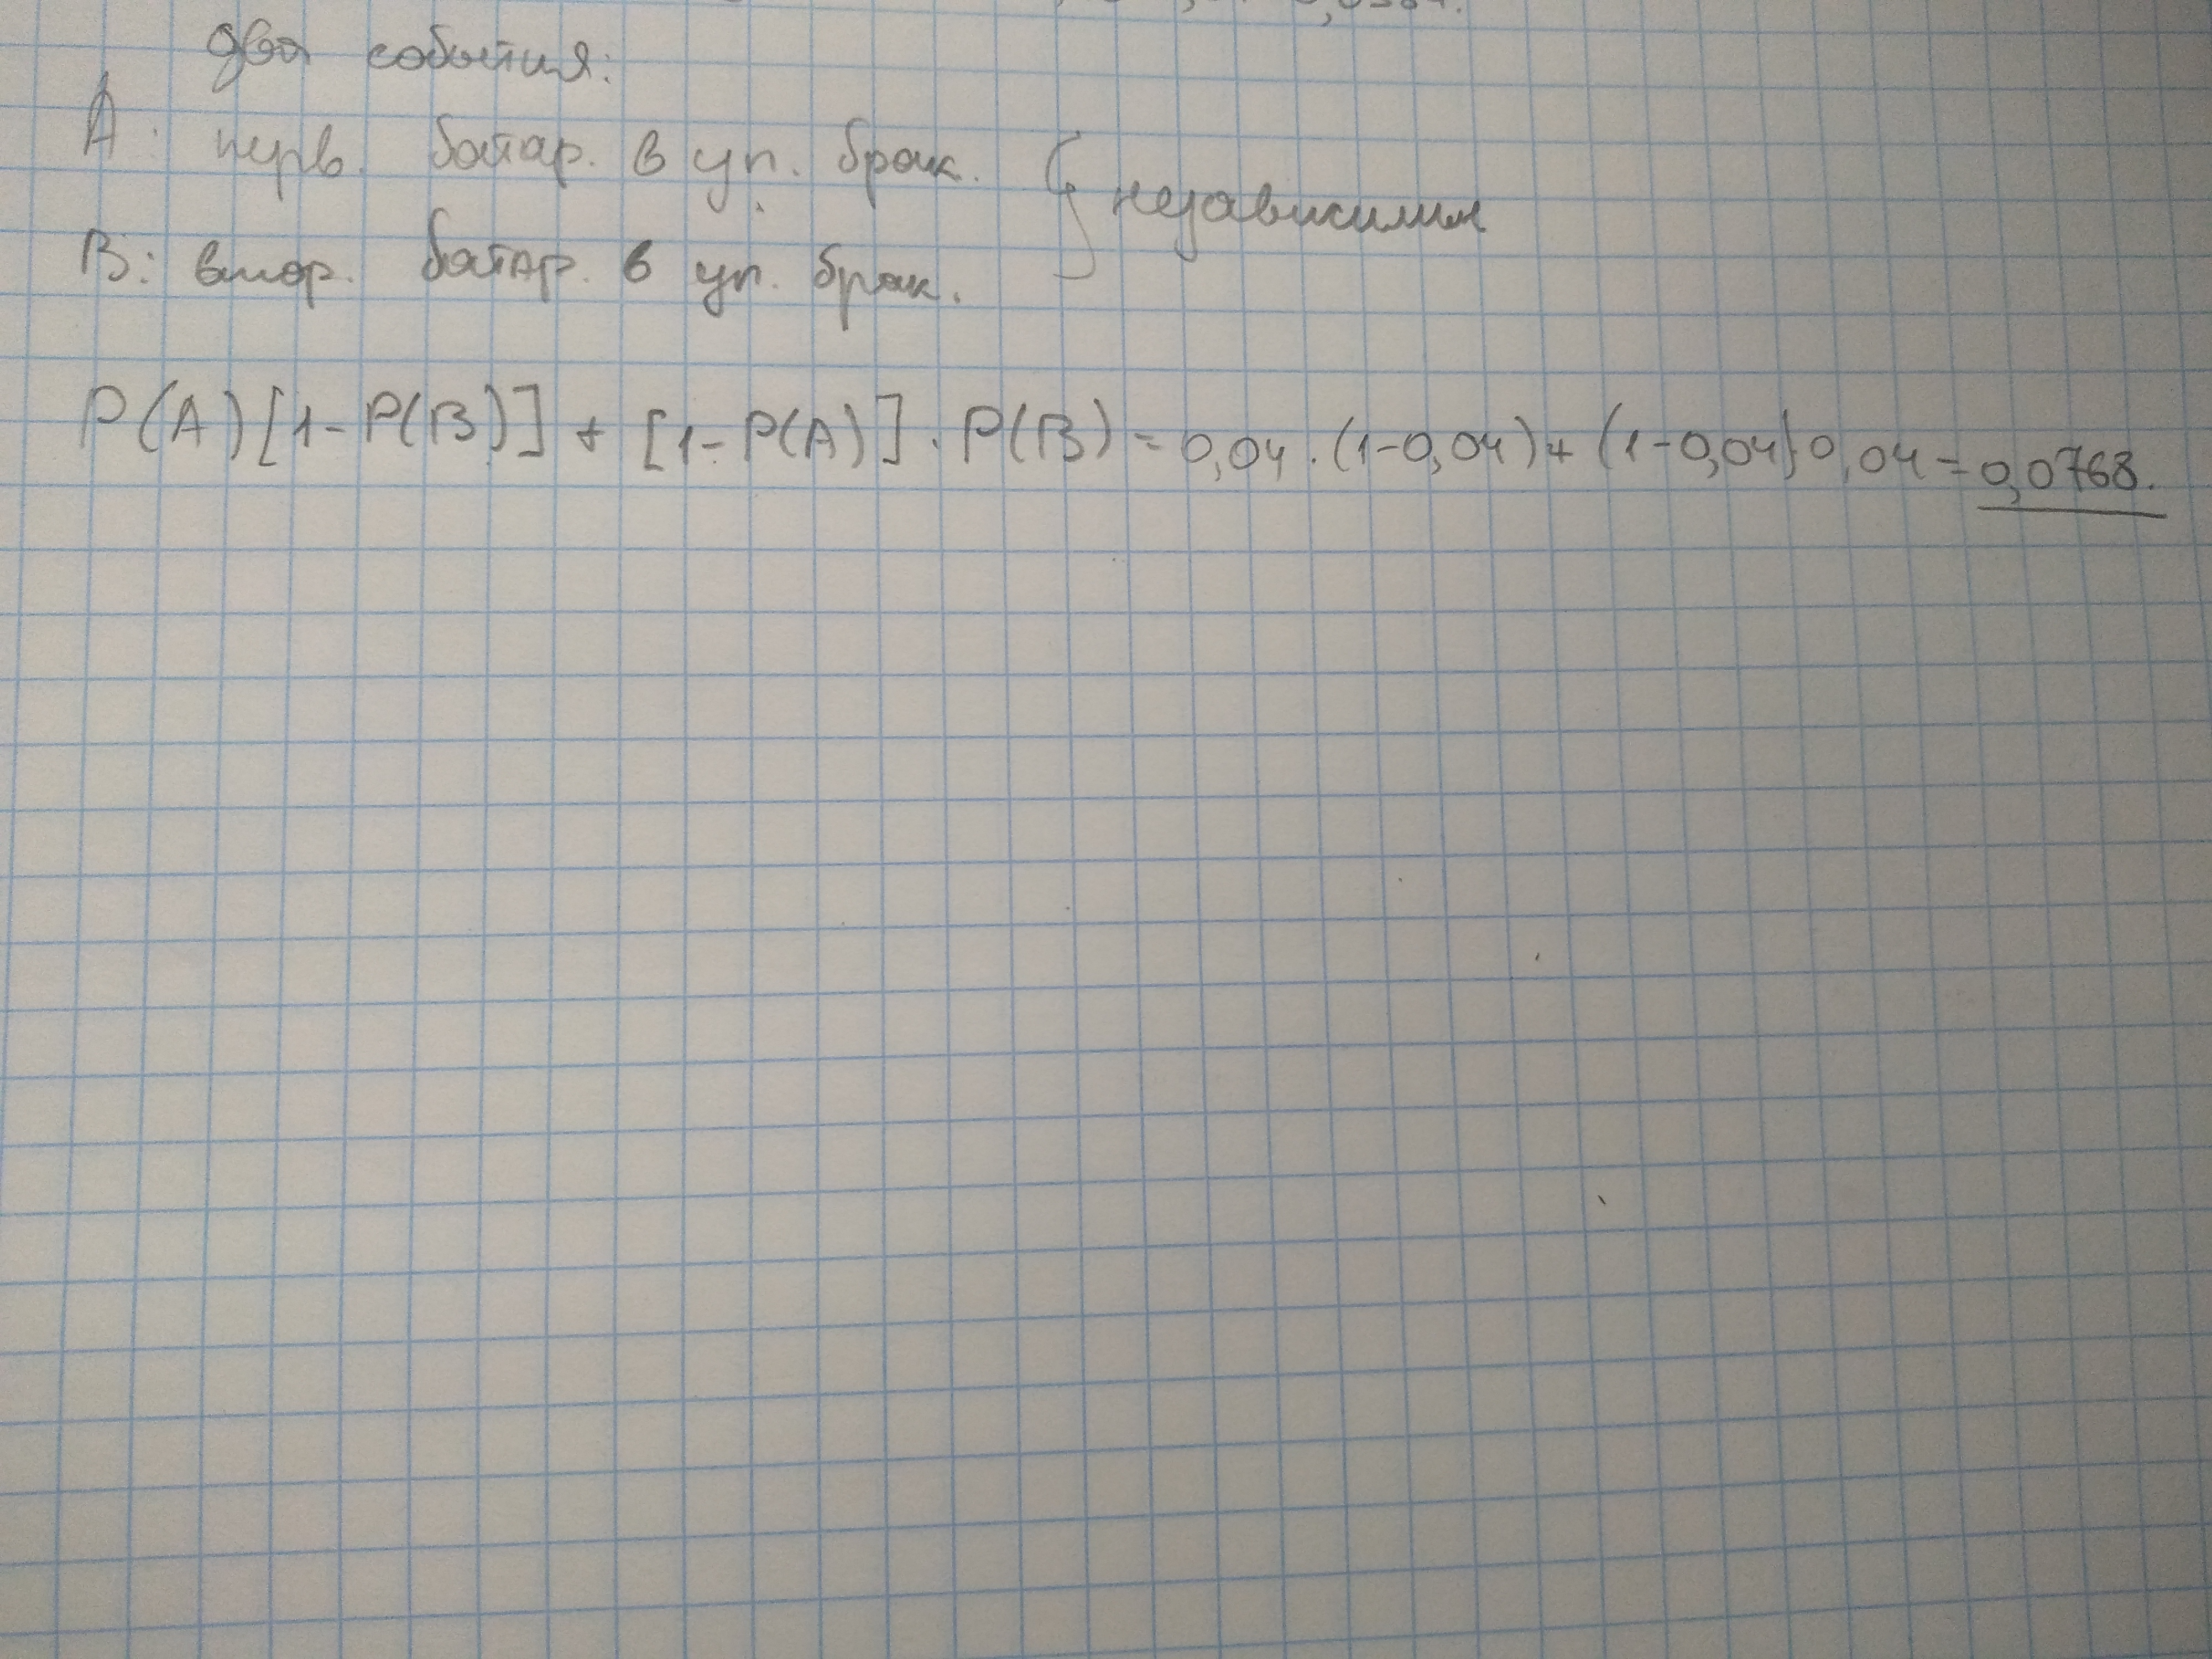 два события:
А: перв. батар. в уп. брак.
В: втор. батар. в уп. брак.
} независимы
P(A)[1-P(B)] + [1-P(A)] · P(B) = 0,04 · (1-0,04) + (1-0,04) 0,04 = 0,0768.